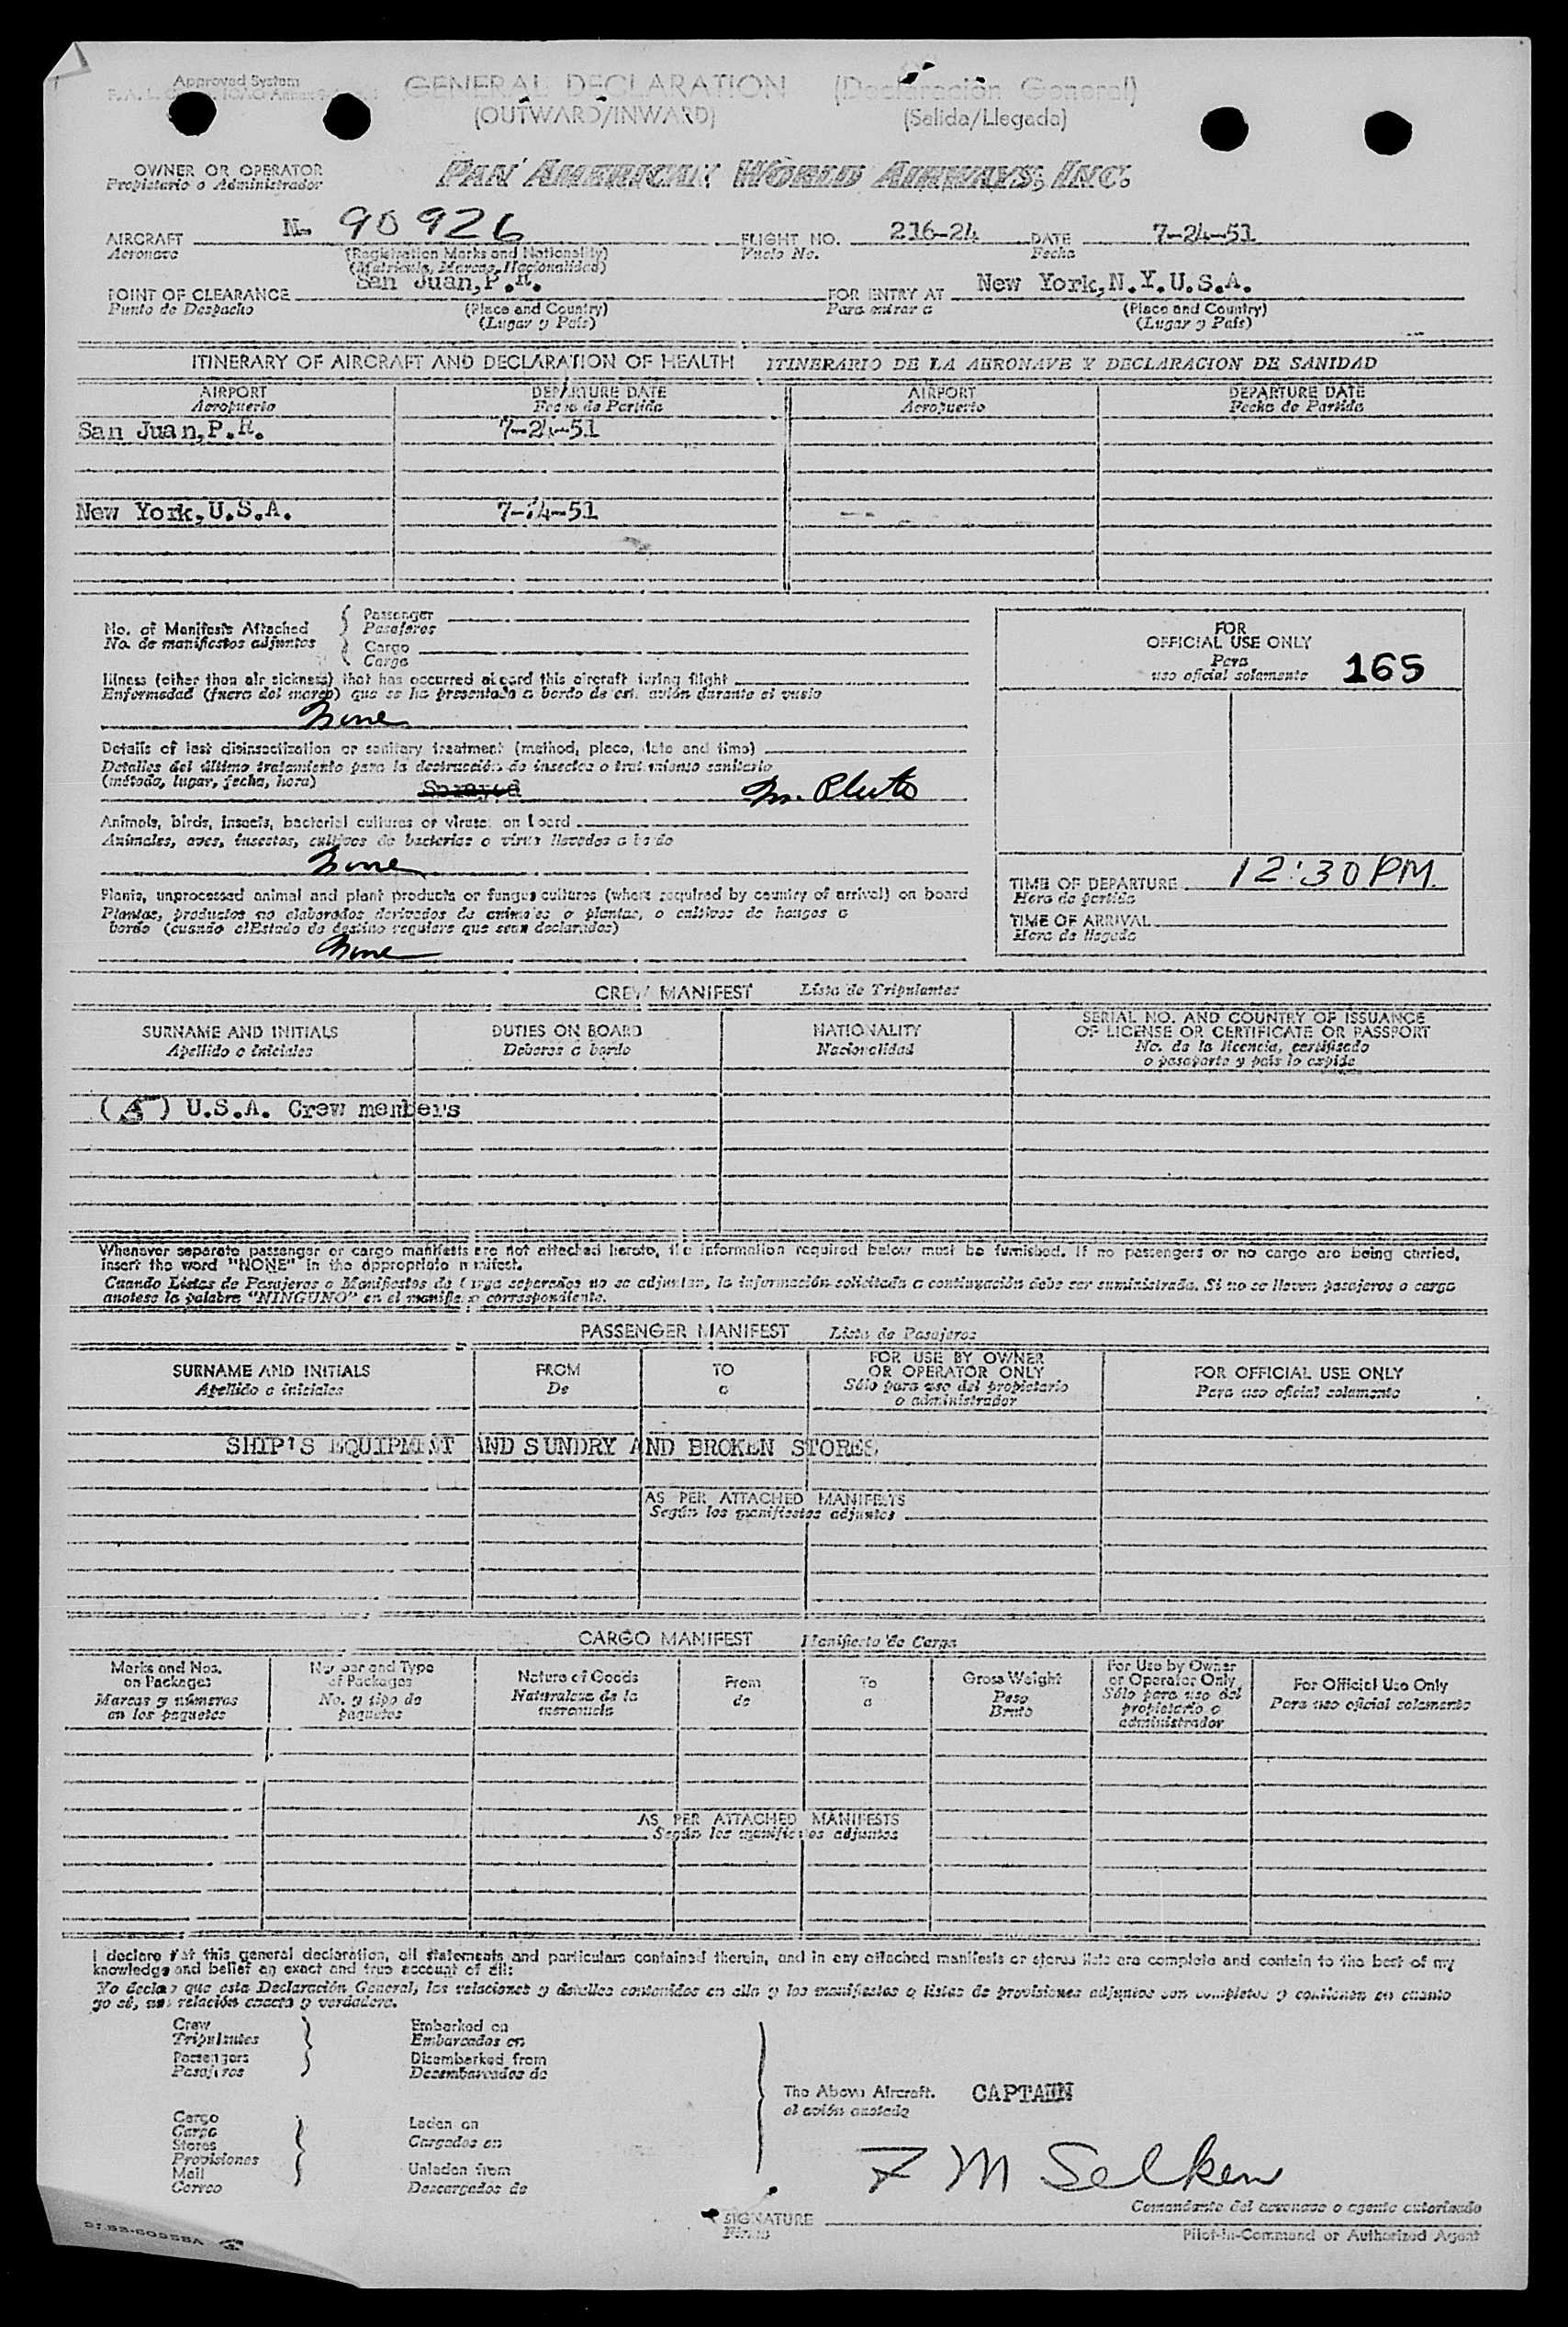 Approved System
GENERAL DECLARATION (Declaración General)
(OUTWARD/INWARD) (Salida/Llegada)
OWNER OR OPERATOR PAN AMERICAN WORLD AIRWAYS, INC.
Propietario o Administrador
AIRCRAFT N- 90926 FLIGHT NO. 216-24 DATE 7-24-51
Aeronave (Registration Marks and Nationality) Vuelo No. Fecha
(Matrícula, Marcas, Nacionalidad)
POINT OF CLEARANCE San Juan, P.R. FOR ENTRY AT New York, N.Y. U.S.A.
Punto de Despacho (Place and Country) Para entrar a (Place and Country)
(Lugar y País) (Lugar y País)
ITINERARY OF AIRCRAFT AND DECLARATION OF HEALTH ITINERARIO DE LA AERONAVE Y DECLARACION DE SANIDAD
AIRPORT DEPARTURE DATE AIRPORT DEPARTURE DATE
Aeropuerto Fecha de Partida Aeropuerto Fecha de Partida
San Juan, P.R. 7-24-51
New York, U.S.A. 7-24-51
No. of Manifests Attached Passenger
No. de manifiestos adjuntos Pasajeros
Cargo
Carga
FOR
OFFICIAL USE ONLY
Para
uso oficial solamente 165
Illness (other than air sickness) that has occurred aboard this aircraft during flight
Enfermedad (fuera del mareo) que se ha presentado a bordo de este avión durante el vuelo
None
Details of last disinsectization or sanitary treatment (method, place, date and time)
Detalles del último tratamiento para la destrucción de insectos o tratamiento sanitario
(método, lugar, fecha, hora) Sprayed
Animals, birds, insects, bacterial cultures or viruses on board
Animales, aves, insectos, cultivos de bacterias o virus llevados a bordo
None
Plants, unprocessed animal and plant products or fungus cultures (where required by country of arrival) on board
Plantas, productos no elaborados derivados de animales o plantas, o cultivos de hongos a
bordo (cuando el Estado de destino requiere que sean declarados)
None
TIME OF DEPARTURE 12:30 PM.
Hora de partida
TIME OF ARRIVAL
Hora de llegada
CREW MANIFEST Lista de Tripulantes
SURNAME AND INITIALS DUTIES ON BOARD NATIONALITY SERIAL NO. AND COUNTRY OF ISSUANCE
OF LICENSE OR CERTIFICATE OR PASSPORT
Apellido e iniciales Deberes a bordo Nacionalidad No. de la licencia, certificado
o pasaporte y país lo expide
(5) U.S.A. Crew members
Whenever separate passenger or cargo manifests are not attached hereto, the information required below must be furnished. If no passengers or no cargo are being carried,
insert the word "NONE" in the appropriate manifest.
Cuando Listas de Pasajeros o Manifiestos de Carga separados no se adjuntan, la información solicitada a continuación debe ser suministrada. Si no se llevan pasajeros o carga
anotese la palabra "NINGUNO" en el manifiesto correspondiente.
PASSENGER MANIFEST Lista de Pasajeros
SURNAME AND INITIALS FROM TO FOR USE BY OWNER
OR OPERATOR ONLY FOR OFFICIAL USE ONLY
Apellido e iniciales De a Sólo para uso del propietario
o administrador Para uso oficial solamente
SHIP'S EQUIPMENT AND SUNDRY AND BROKEN STORES
AS PER ATTACHED MANIFESTS
Según los manifiestos adjuntos
CARGO MANIFEST Manifiesto de Carga
Marks and Nos.
on Packages
Marcas y números
en los paquetes
Number and Type
of Packages
No. y tipo de
paquetes
Nature of Goods
Naturaleza de la
mercancía
From
de
To
a
Gross Weight
Peso
Bruto
For Use by Owner
or Operator Only
Sólo para uso del
propietario o
administrador
For Official Use Only
Para uso oficial solamente
AS PER ATTACHED MANIFESTS
Según los manifiestos adjuntos
I declare that this general declaration, all statements and particulars contained therein, and in any attached manifests or stores lists are complete and contain to the best of my
knowledge and belief an exact and true account of all:
Yo declaro que esta Declaración General, las relaciones y detalles contenidos en ella y los manifiestos o listas de provisiones adjuntos son completos y contienen en cuanto
yo sé, una relación exacta y verdadera.
Crew
Tripulantes
Passengers
Pasajeros
Embarked on
Embarcados en
Disembarked from
Desembarcados de
Cargo
Carga
Stores
Provisiones
Mail
Correo
Laden on
Cargados en
Unladen from
Descargados de
The Above Aircraft. CAPTAIN
el avión anotado
F M Selken
Comandante del aeronave o agente autorizado
SIGNATURE
Firma
Pilot-in-Command or Authorized Agent